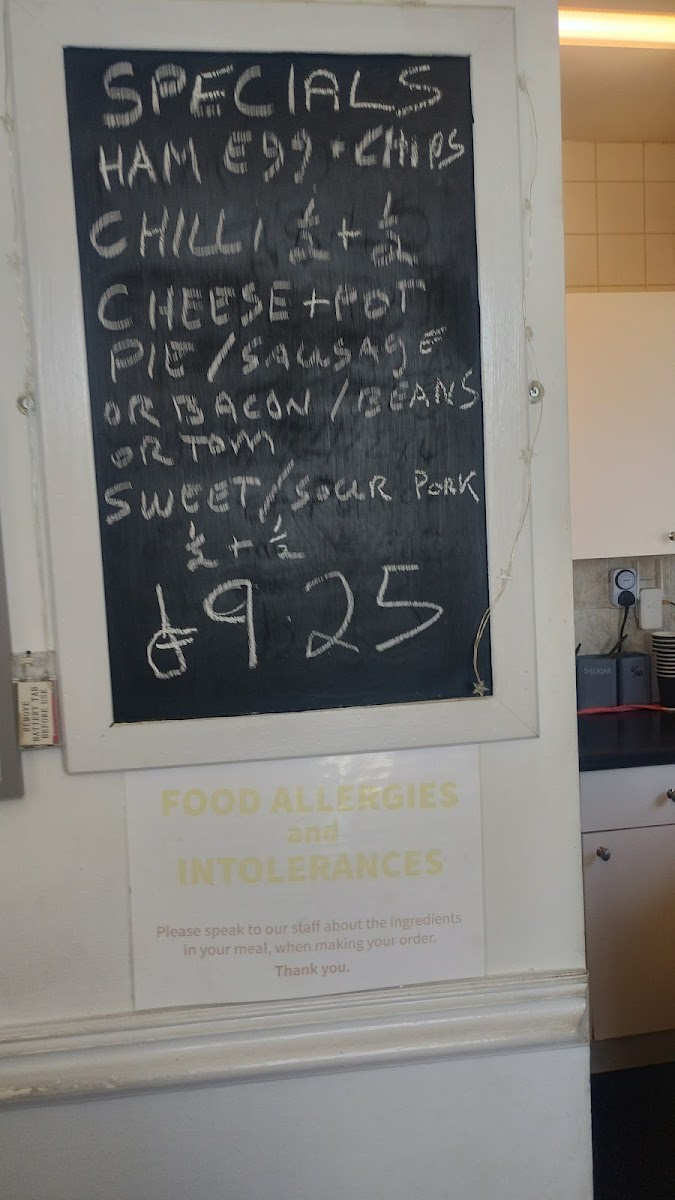 SPECIALS
HAM EGG + CHIPS
CHILLI ½ + ½
CHEESE + POT
PIE / SAUSAGE
OR BACON / BEANS
OR TOM
SWEET / SOUR PORK
½ + ½
£9.25
REMOVE
BATTERY TAB
BEFORE USE
SUGAR
FOOD ALLERGIES
and
INTOLERANCES
Please speak to our staff about the ingredients
in your meal, when making your order.
Thank you.